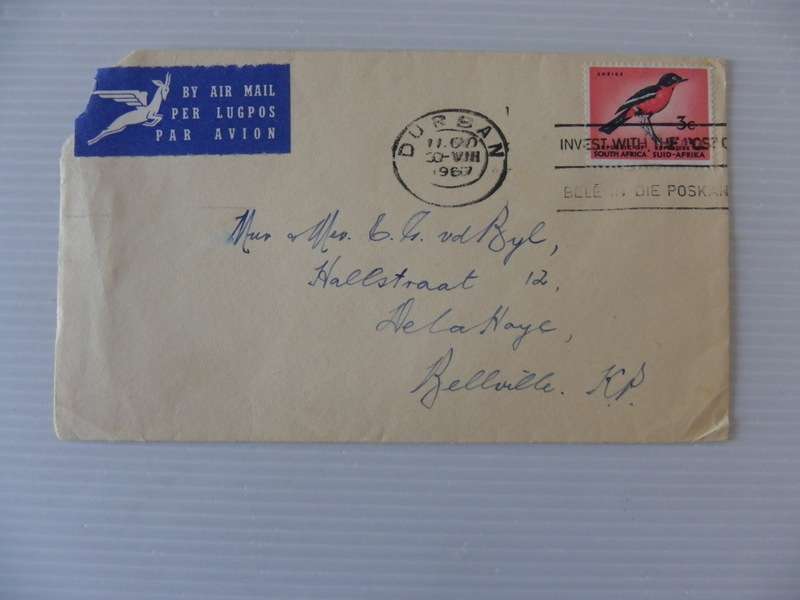 BY AIR MAIL
PER LUGPOS
PAR AVION
DURBAN
30-VIII
196
3c
SOUTH AFRICA SUID-AFRIKA
INVEST WITH THE POST O
BELÊ IN DIE POSKAN
Mnr & Mev. C. G. vd Byl,
Hallstraat 12,
De la Haye,
Bellville. K.P.